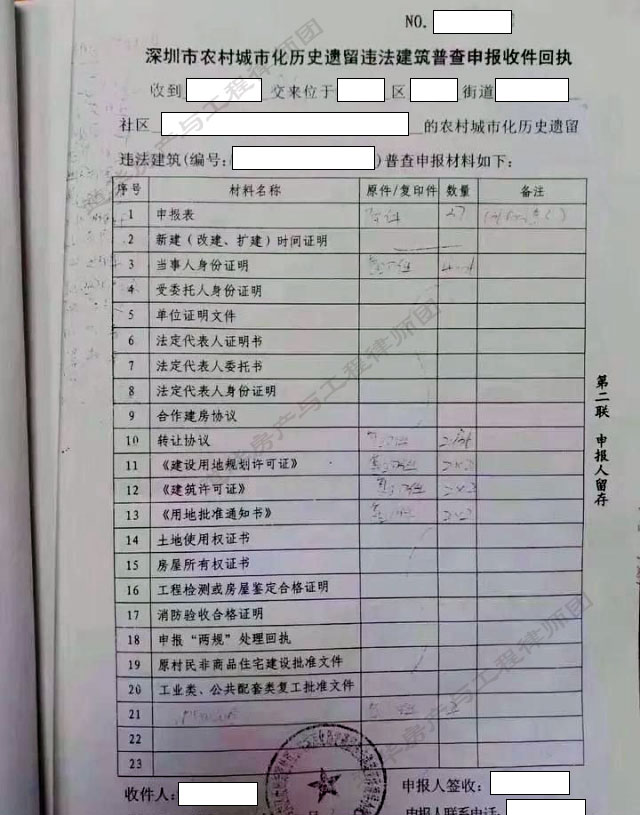 NO.
深圳市农村城市化历史遗留违法建筑普查申报收件回执
收到 交来位于 区 街道
社区 的农村城市化历史遗留
违法建筑(编号: )普查申报材料如下:
序号 材料名称 原件/复印件 数量 备注
1 申报表
2 新建（改建、扩建）时间证明
3 当事人身份证明
4 受委托人身份证明
5 单位证明文件
6 法定代表人证明书
7 法定代表人委托书
8 法定代表人身份证明
9 合作建房协议
10 转让协议
11 《建设用地规划许可证》
12 《建筑许可证》
13 《用地批准通知书》
14 土地使用权证书
15 房屋所有权证书
16 工程检测或房屋鉴定合格证明
17 消防验收合格证明
18 申报“两规”处理回执
19 原村民非商品住宅建设批准文件
20 工业类、公共配套类复工批准文件
21
22
23
收件人: 申报人签收:
申报人联系电话:
第二联 申报人留存
房产与工程律师团